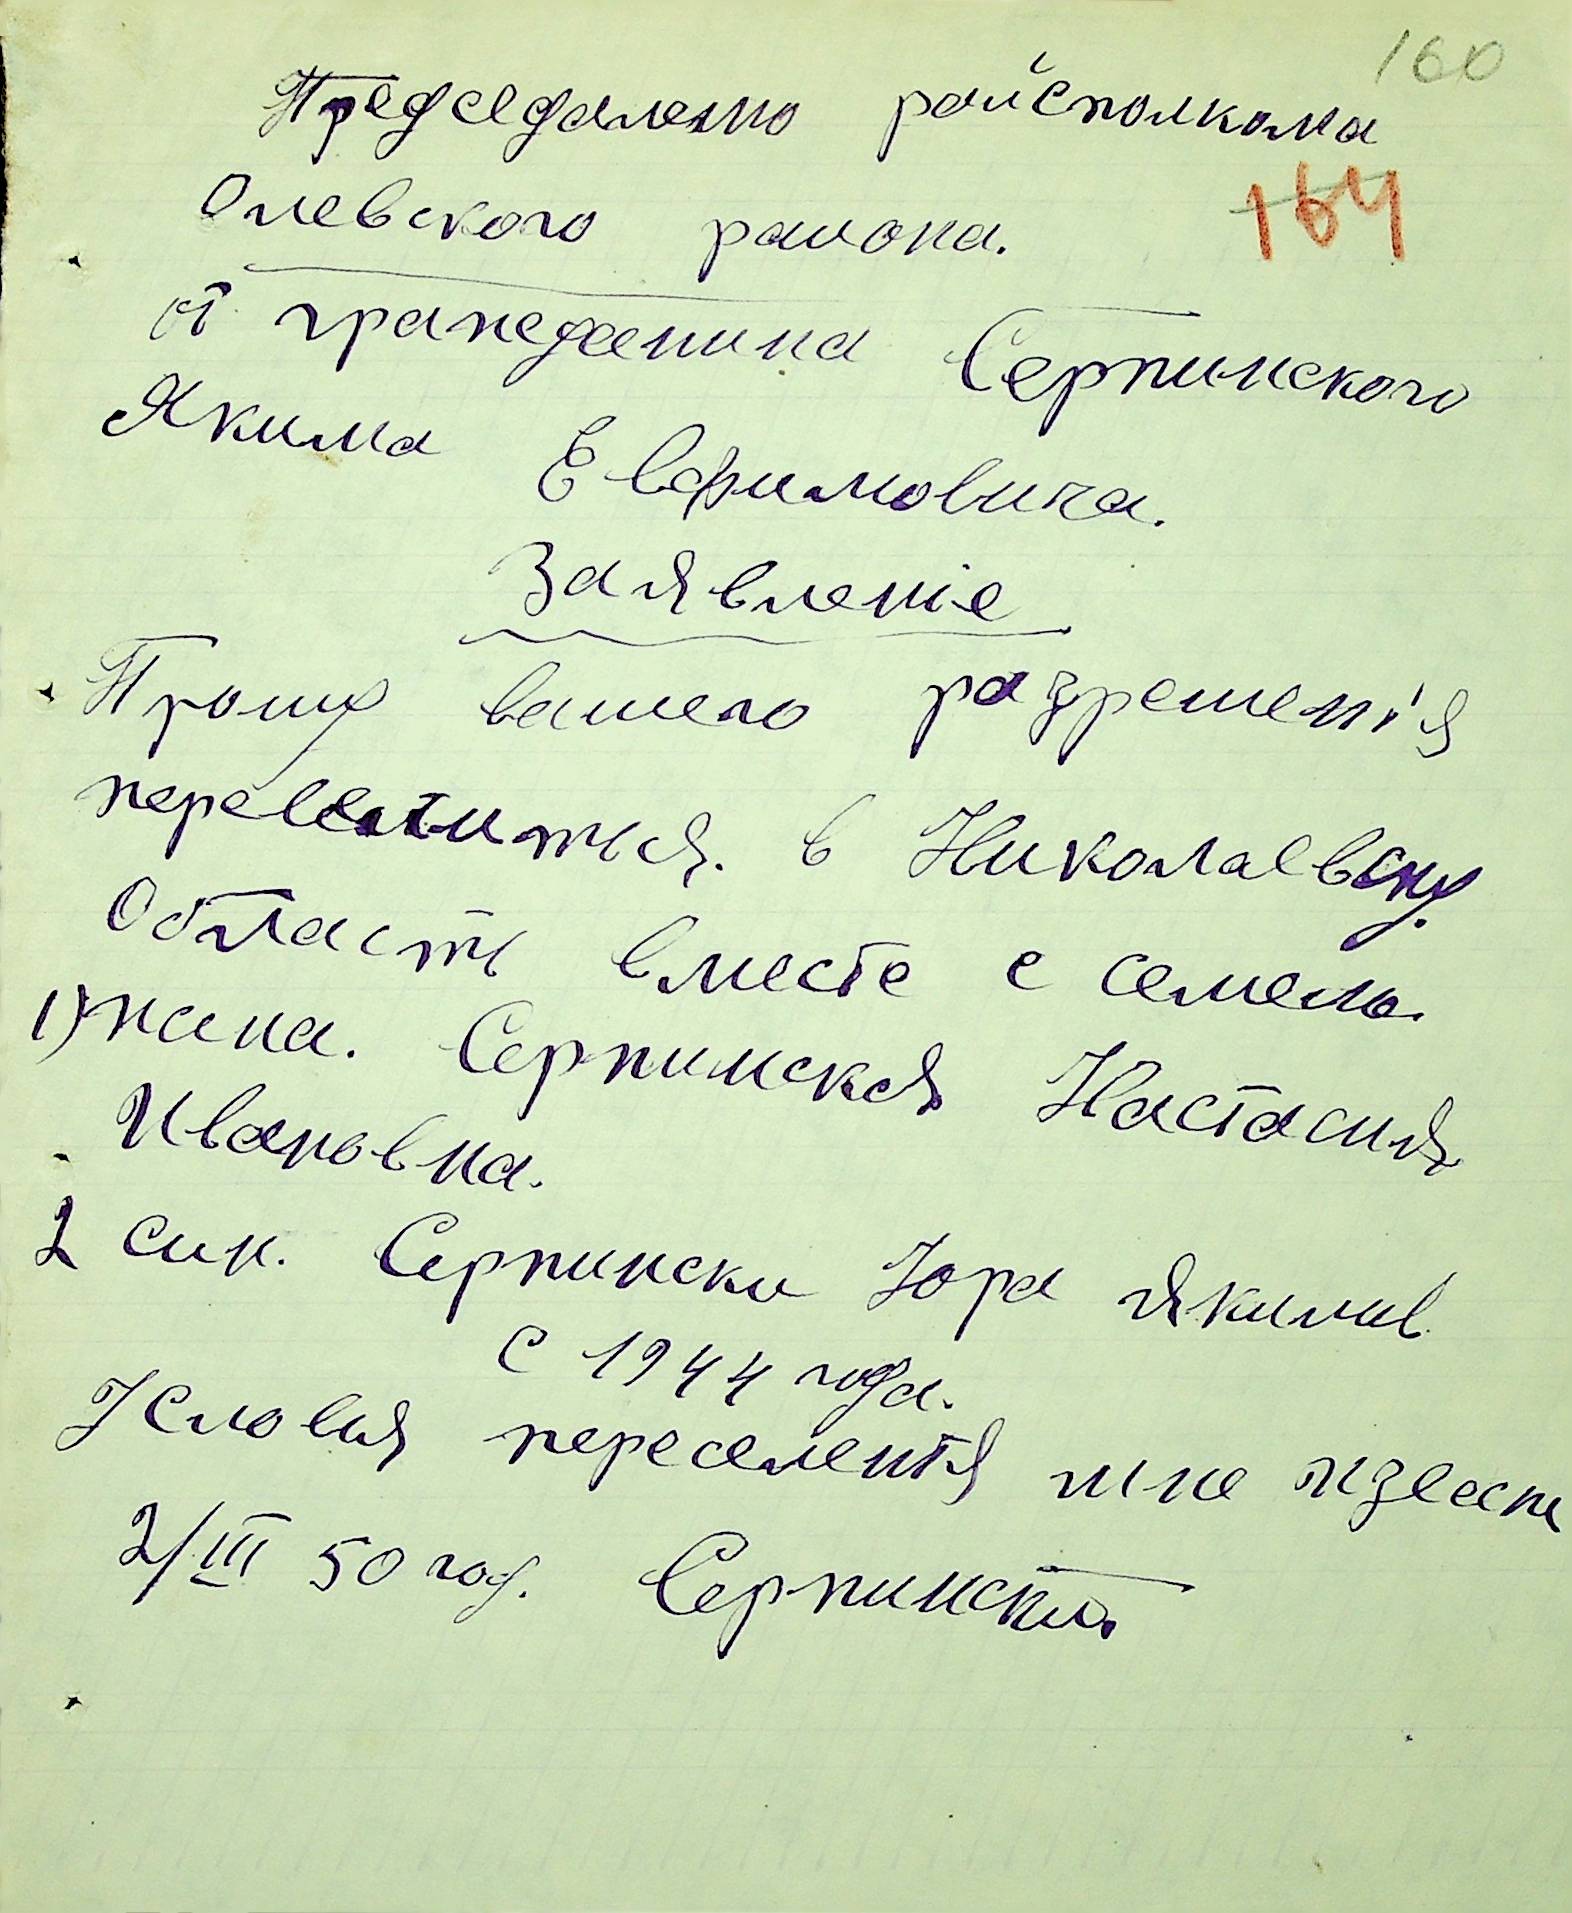 160
Председателю райсполкома
164
Олевского раиона.
от гражеданина Серпинского
Якима Евфимовича.
Заявленіе
Прошу вашего разрешенія
переселитися. в Николаевску.
Область вместе с семею.
1) жана. Серпинская Настасия
Ивановна.
2 син. Серпински Юра Якимов.
с 1944 года.
Условия переселентя мне извесн
2/III 50 год. Серпински.